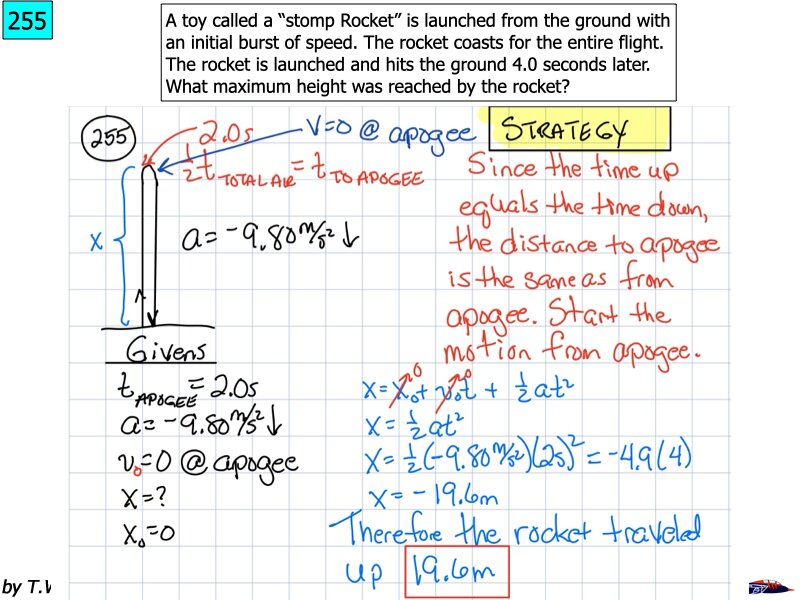 255
A toy called a “stomp Rocket” is launched from the ground with
an initial burst of speed. The rocket coasts for the entire flight.
The rocket is launched and hits the ground 4.0 seconds later.
What maximum height was reached by the rocket?
255
2.0s
V=0 @ apogee
STRATEGY
½t TOTAL AIR = t TO APOGEE
x
a= -9.80 m/s² ↓
Since the time up
equals the time down,
the distance to apogee
is the same as from
apogee. Start the
motion from apogee.
Givens
t APOGEE = 2.0s
a= -9.80 m/s² ↓
v₀=0 @ apogee
x=?
x₀=0
x= x₀ + v₀t + ½at²
0
0
x= ½at²
x= ½(-9.80 m/s²)(2s)² = -4.9(4)
x= -19.6m
Therefore the rocket traveled
up 19.6m
by T.W